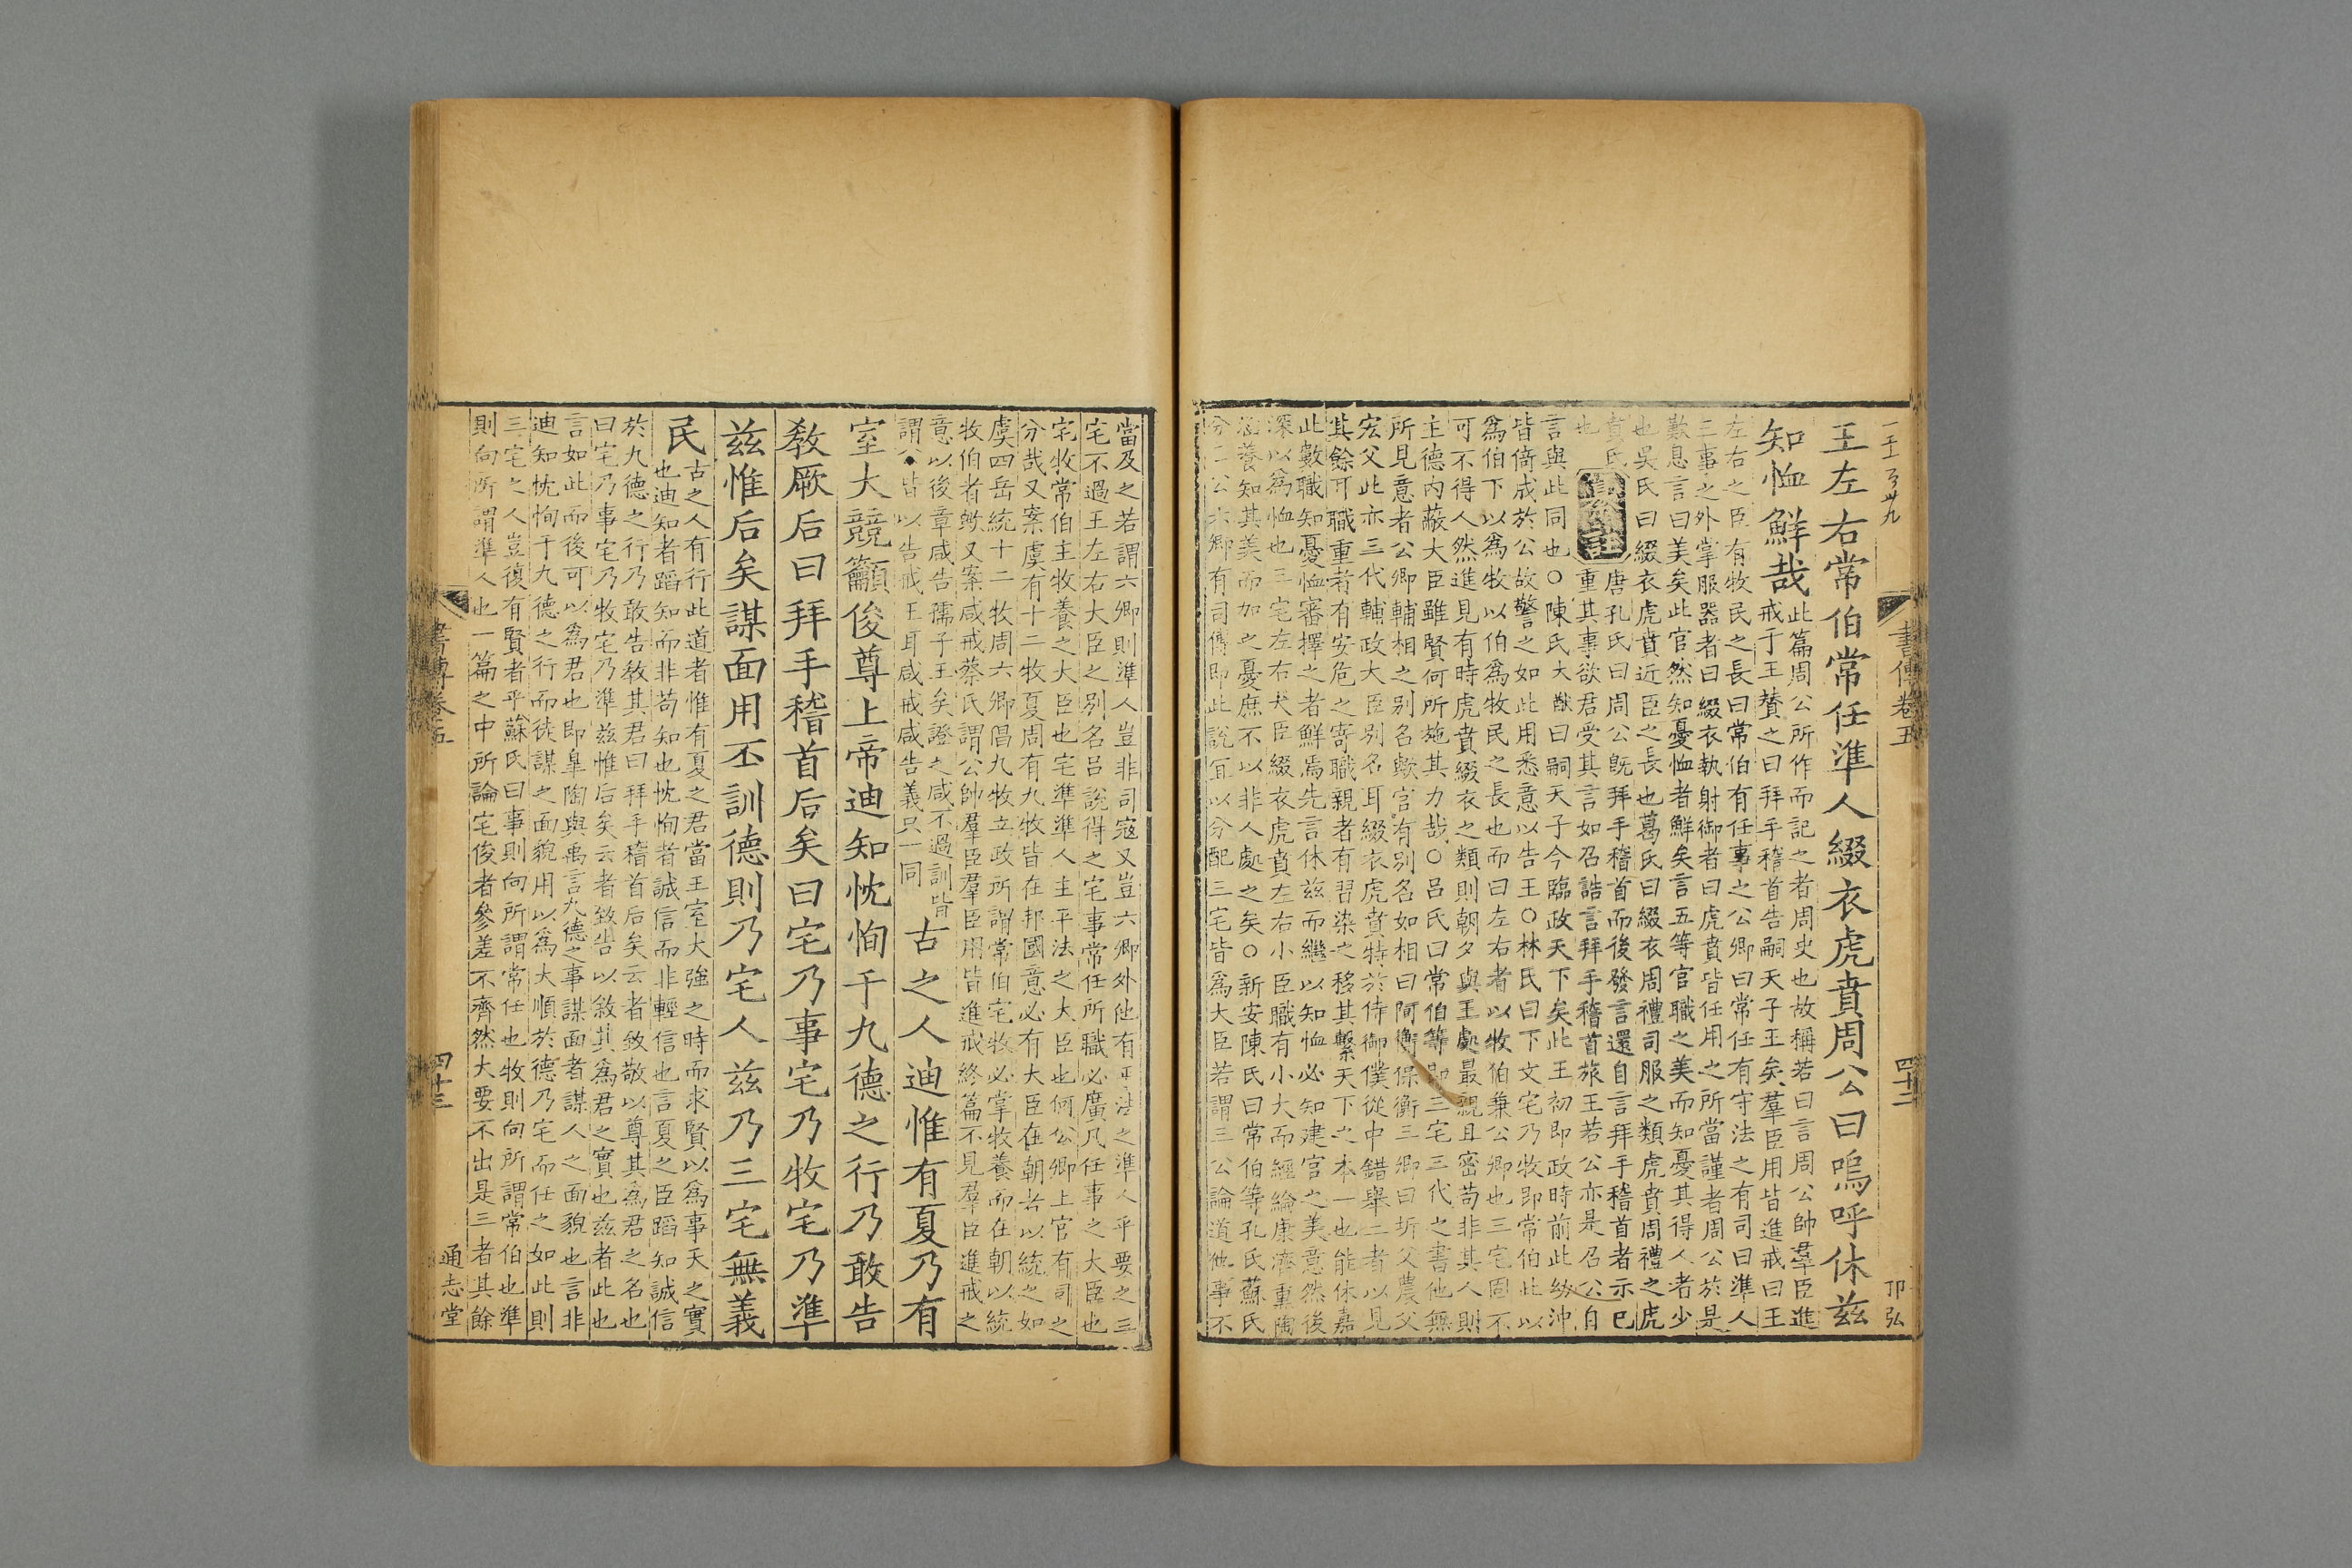 王左右常伯常任準人綴衣虎賁周公曰嗚呼休茲
知恤鮮哉
此篇周公所作而記之者周史也故稱若曰言周公帥羣臣進
戒于王賛之曰拜手稽首告嗣天子王矣羣臣用皆進戒曰王
左右之臣有牧民之長曰常伯有任事之公卿曰常任有守法之有司曰準人
三事之外掌服器者曰綴衣執射御者曰虎賁皆任用之所當謹者周公於是
歎息言曰美矣此官然知憂恤者鮮矣言五等官職之美而知憂其得人者少
也吳氏曰綴衣虎賁近臣之長也葛氏曰綴衣周禮司服之類虎賁周禮之虎
賁氏
唐孔氏曰周公旣拜手稽首而後發言還自言拜手稽首者示已
也
重其事欲君受其言如召誥言拜手稽首旅王若公亦是召公自
言與此同也○陳氏大猷曰嗣天子今臨政天下矣此王初即政時前此幼沖
皆倚成於公故警之如此用悉意以告王○林氏曰下文宅乃牧即常伯此以
爲伯下以爲牧以伯爲牧民之長也而曰左右者以牧伯兼公卿也三宅固不
可不得人然進見有時虎賁綴衣之類則朝夕與王處最親且密苟非其人則
主德內蔽大臣雖賢何所施其力哉○呂氏曰常伯等即三宅三代之書他無
所見意者公卿輔相之別名歟官有別名如相曰阿衡保衡三卿曰圻父農父
宏父此亦三代輔政大臣別名耳綴衣虎賁特於侍御僕從中錯舉二者以見
其餘可職重者有安危之寄職親者有習染之移其繫天下之本一也能休嘉
此數職知憂恤審擇之者鮮焉先言休茲而繼以知恤必知建官之美意然後
深以爲恤也三宅左右大臣綴衣虎賁左右小臣職有小大而經綸康濟熏陶
涵養知其美而加之憂庶不以非人處之矣○新安陳氏曰常伯等孔氏蘇氏
分二公六卿有司傅即此說宜以分配三宅皆爲大臣若謂三公論道他事不
書傳卷五
四十二
當及之若謂六卿則準人豈非司寇又豈六卿外他有平法之準人乎要之三
宅不過王左右大臣之別名呂說得之宅事常任所職必廣凡任事之大臣也
宅牧常伯主牧養之大臣也宅準準人主平法之大臣也何公卿上官有司之
分哉又案虞有十二牧夏周有九牧皆在邦國意必有大臣在朝者以統之如
虞四岳統十二牧周六卿倡九牧立政所謂常伯宅牧必掌牧養而在朝以統
牧伯者歟又案咸戒蔡氏謂公帥羣臣羣臣用皆進戒終篇不見羣臣進戒之
意以後章咸告孺子王矣證之咸不過訓皆
謂公皆以告戒王耳咸戒咸告義只一同
古之人迪惟有夏乃有
室大競籲俊尊上帝迪知忱恂于九德之行乃敢告
敎厥后曰拜手稽首后矣曰宅乃事宅乃牧宅乃準
茲惟后矣謀面用丕訓德則乃宅人茲乃三宅無義
民
古之人有行此道者惟有夏之君當王室大強之時而求賢以爲事天之實
也迪知者蹈知而非苟知也忱恂者誠信而非輕信也言夏之臣蹈知誠信
於九德之行乃敢告敎其君曰拜手稽首后矣云者致敬以尊其爲君之名也
曰宅乃事宅乃牧宅乃準茲惟后矣云者致告以敘其爲君之實也茲者此也
言如此而後可以爲君也即臯陶與禹言九德之事謀面者謀人之面貌也言非
迪知忱恂于九德之行而徒謀之面貌用以爲大順於德乃宅而任之如此則
三宅之人豈復有賢者乎蘇氏曰事則向所謂常任也牧則向所謂常伯也準
則向所謂準人也一篇之中所論宅俊者參差不齊然大要不出是三者其餘
書傳卷五
四十三
通志堂